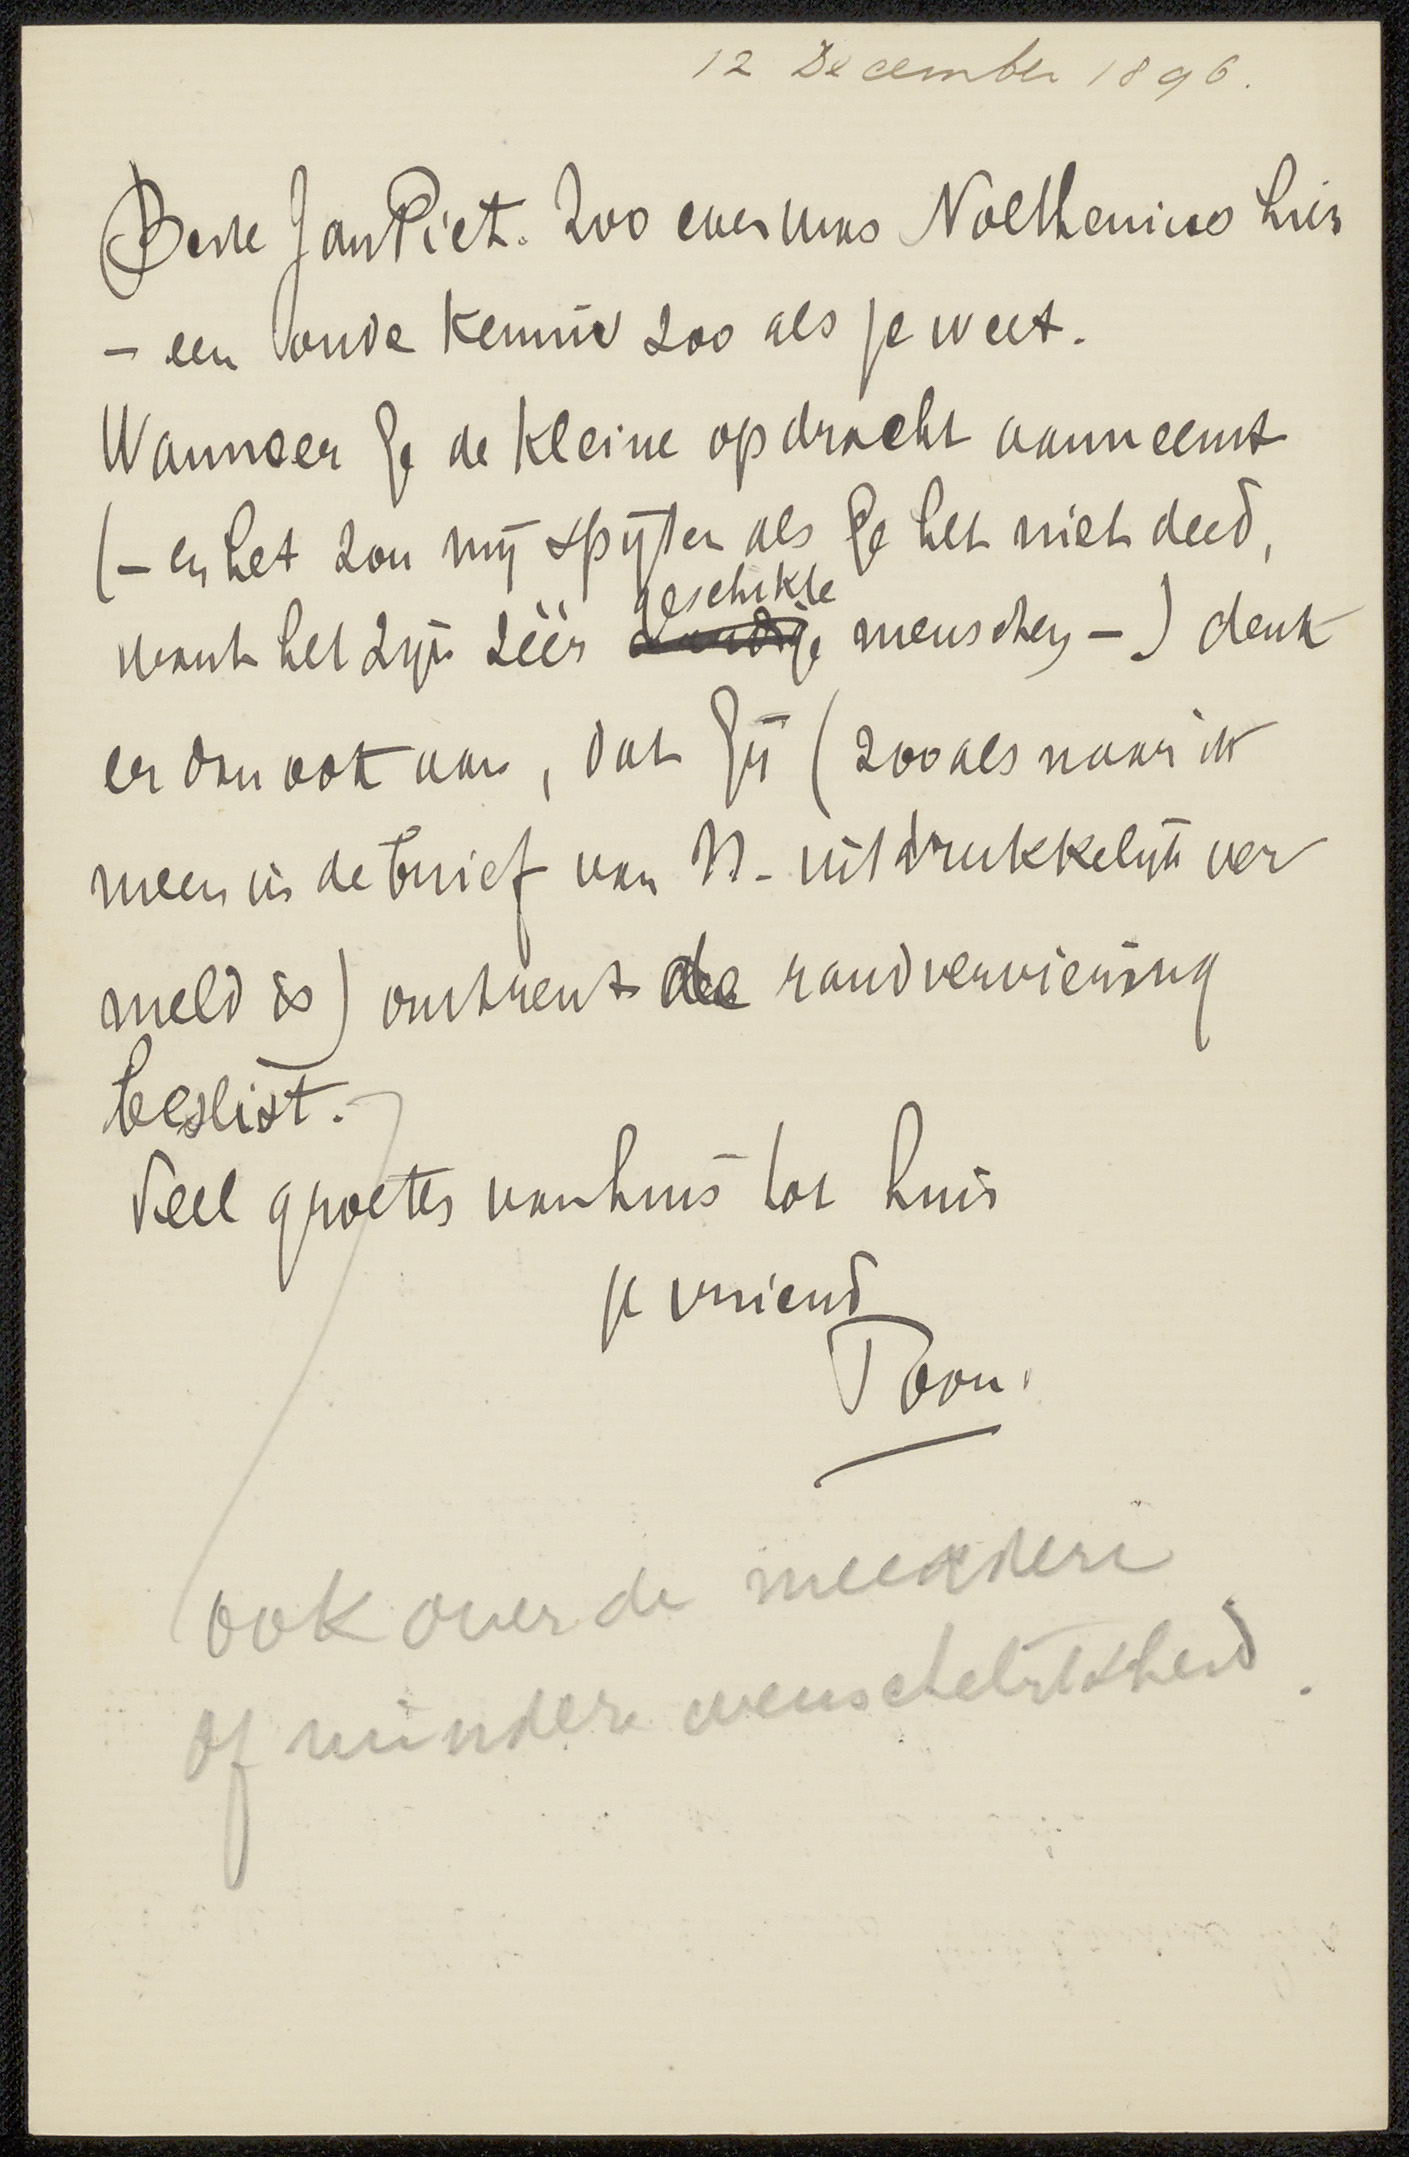 12 December 1896.
Beste Jan Piet. Zoo even was Nolthenius hier
– een oude kennis zoo als je weet.
Wanneer Ge de kleine opdracht aanneemt
(– en het zou mij spijten als Ge het niet deed,
want het zijn zéér geschikte menschen –) denk
er dan ook aan, dat Gij (zooals naar ik
meen in de brief van N. uitdrukkelijk ver
meld is) omtrent de randversiering
beslist.
Veel groeten van huis tot huis
je vriend
Toon.
ook over de meerdere
of mindere wenschelijkheid.